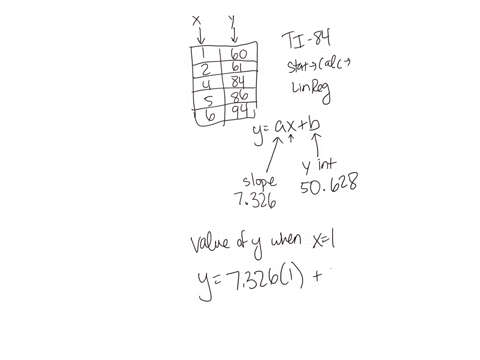 X Y
1 60
2 61
4 84
5 86
6 94
TI-84
Stat→Calc→
LinReg
y=ax+b
slope
7.326
y int
50.628
value of y when x=1
y=7.326(1) +